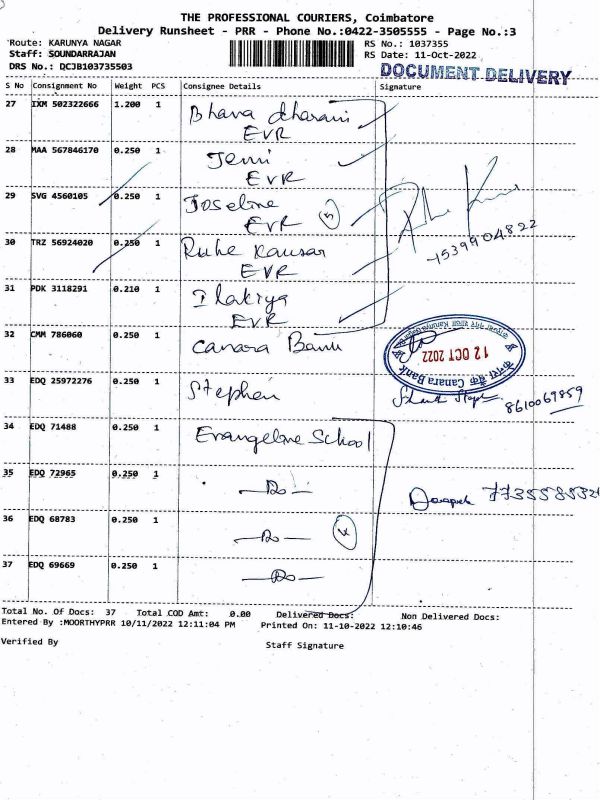 THE PROFESSIONAL COURIERS, Coimbatore
Delivery Runsheet - PRR - Phone No.:0422-3505555 - Page No.:3
Route: KARUNYA NAGAR
RS No.: 1037355
Staff: SOUNDARRAJAN
RS Date: 11-Oct-2022
DRS No.: QCJB103735503
DOCUMENT DELIVERY
S No Consignment No Weight PCS Consignee Details Signature
27 IXM 502322666 1.200 1 Bhava dharani
EVR
28 MAA 567846170 0.250 1 Jemi
EVR
29 SVG 4560105 0.250 1 Joseline
EVR 5
30 TRZ 56924020 0.250 1 Ruhe Kausar
EVR
31 PDK 3118291 0.210 1 Ilakiya
EVR
32 CMM 786060 0.250 1 Canara Bank
12 OCT 2022
Canara Bank
33 EDQ 25972276 0.250 1 Stephen
8610069859
34 EDQ 71488 0.250 1 Evangeline School
35 EDQ 72965 0.250 1 —Do—
36 EDQ 68783 0.250 1 —Do— 4
37 EDQ 69669 0.250 1 —Do—
Total No. Of Docs: 37 Total COD Amt: 0.00 Delivered Docs: Non Delivered Docs:
Entered By :MOORTHYPRR 10/11/2022 12:11:04 PM Printed On: 11-10-2022 12:10:46
Verified By Staff Signature